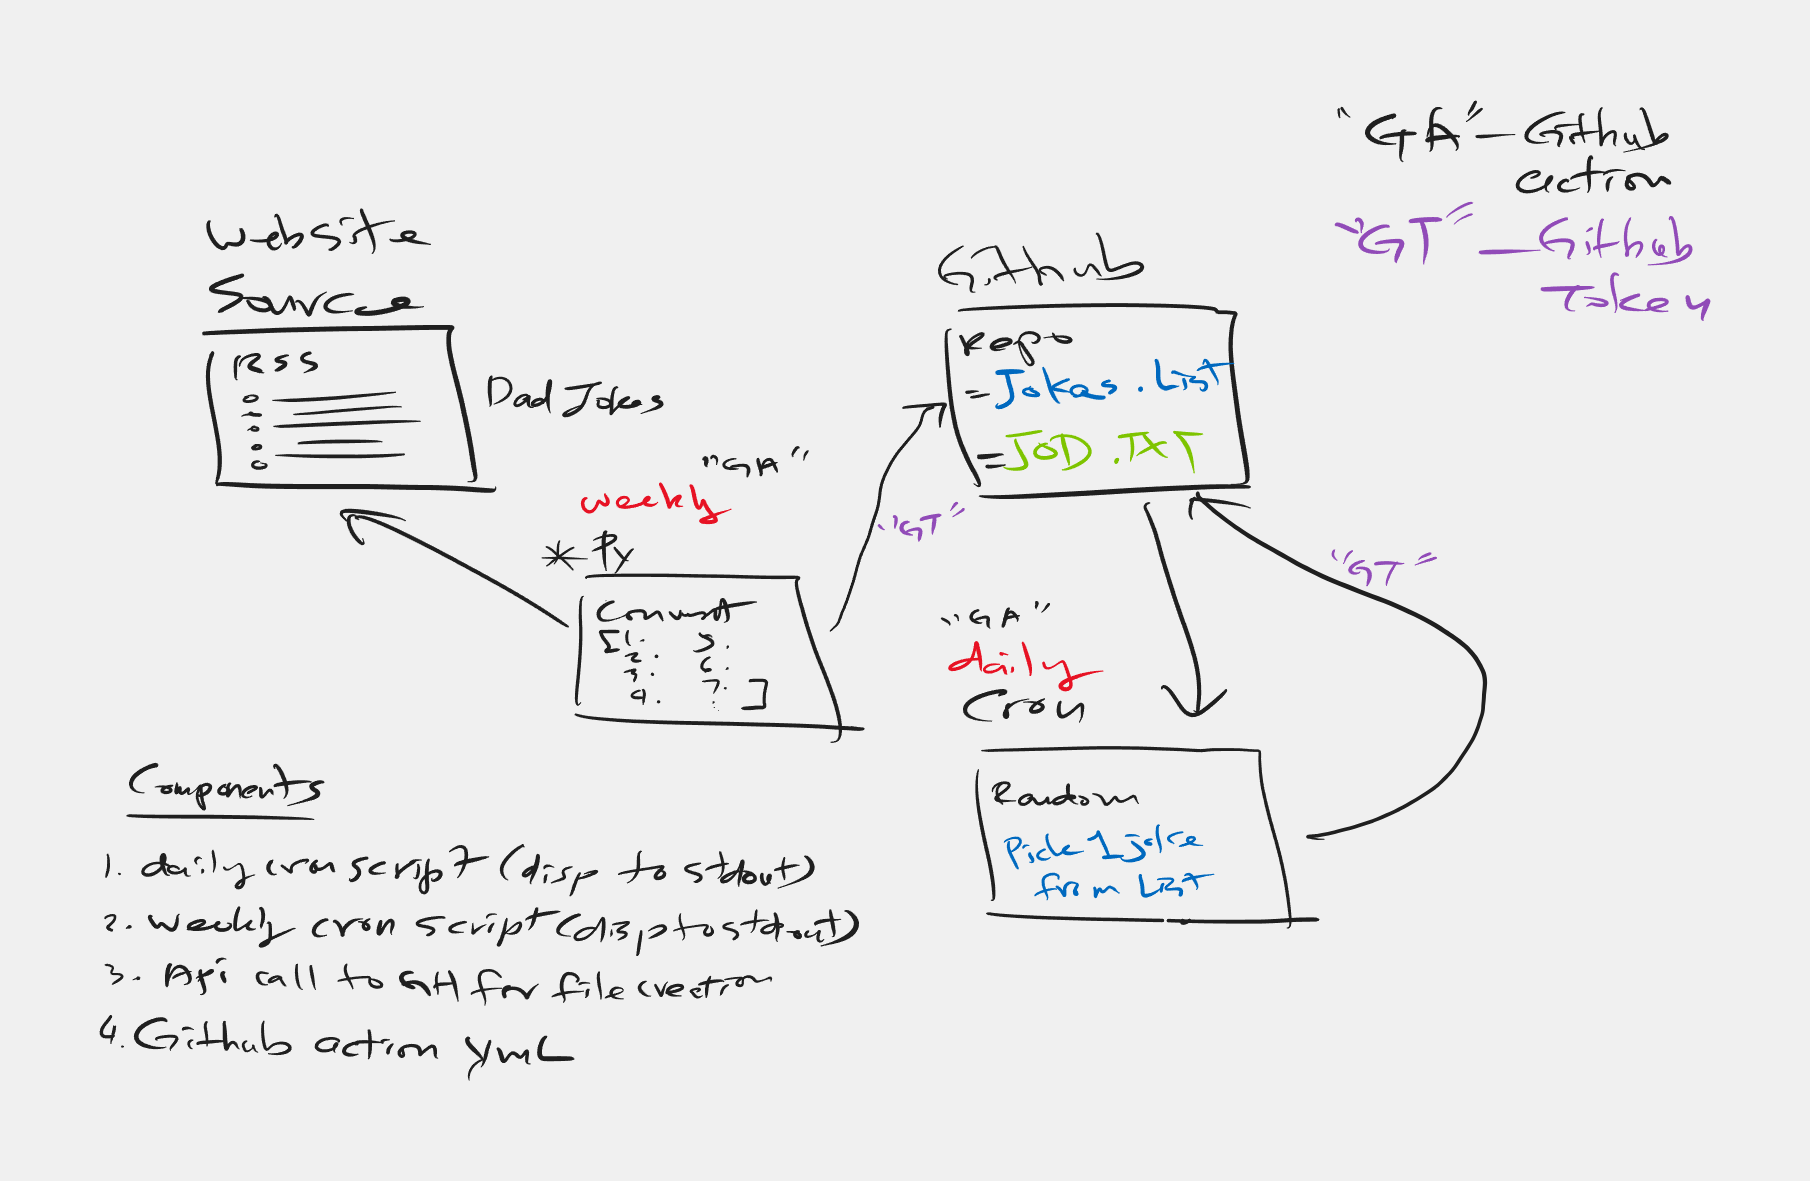 "GA" — Github
action
"GT" — Github
Token
Website
Source
RSS
Dad Jokes
Github
Repo
= Jokes.List
= JOD.TXT
"GA"
weekly
* Py
Convert
[1. 5.
2. 6.
3. 7.
4. . ]
"GT"
"GT"
"GA"
daily
Cron
Random
Pick 1 joke
from List
Components
1. daily cron script (disp to stdout)
2. weekly cron script (disp to stdout)
3. Api call to GH for file creation
4. Github action yml